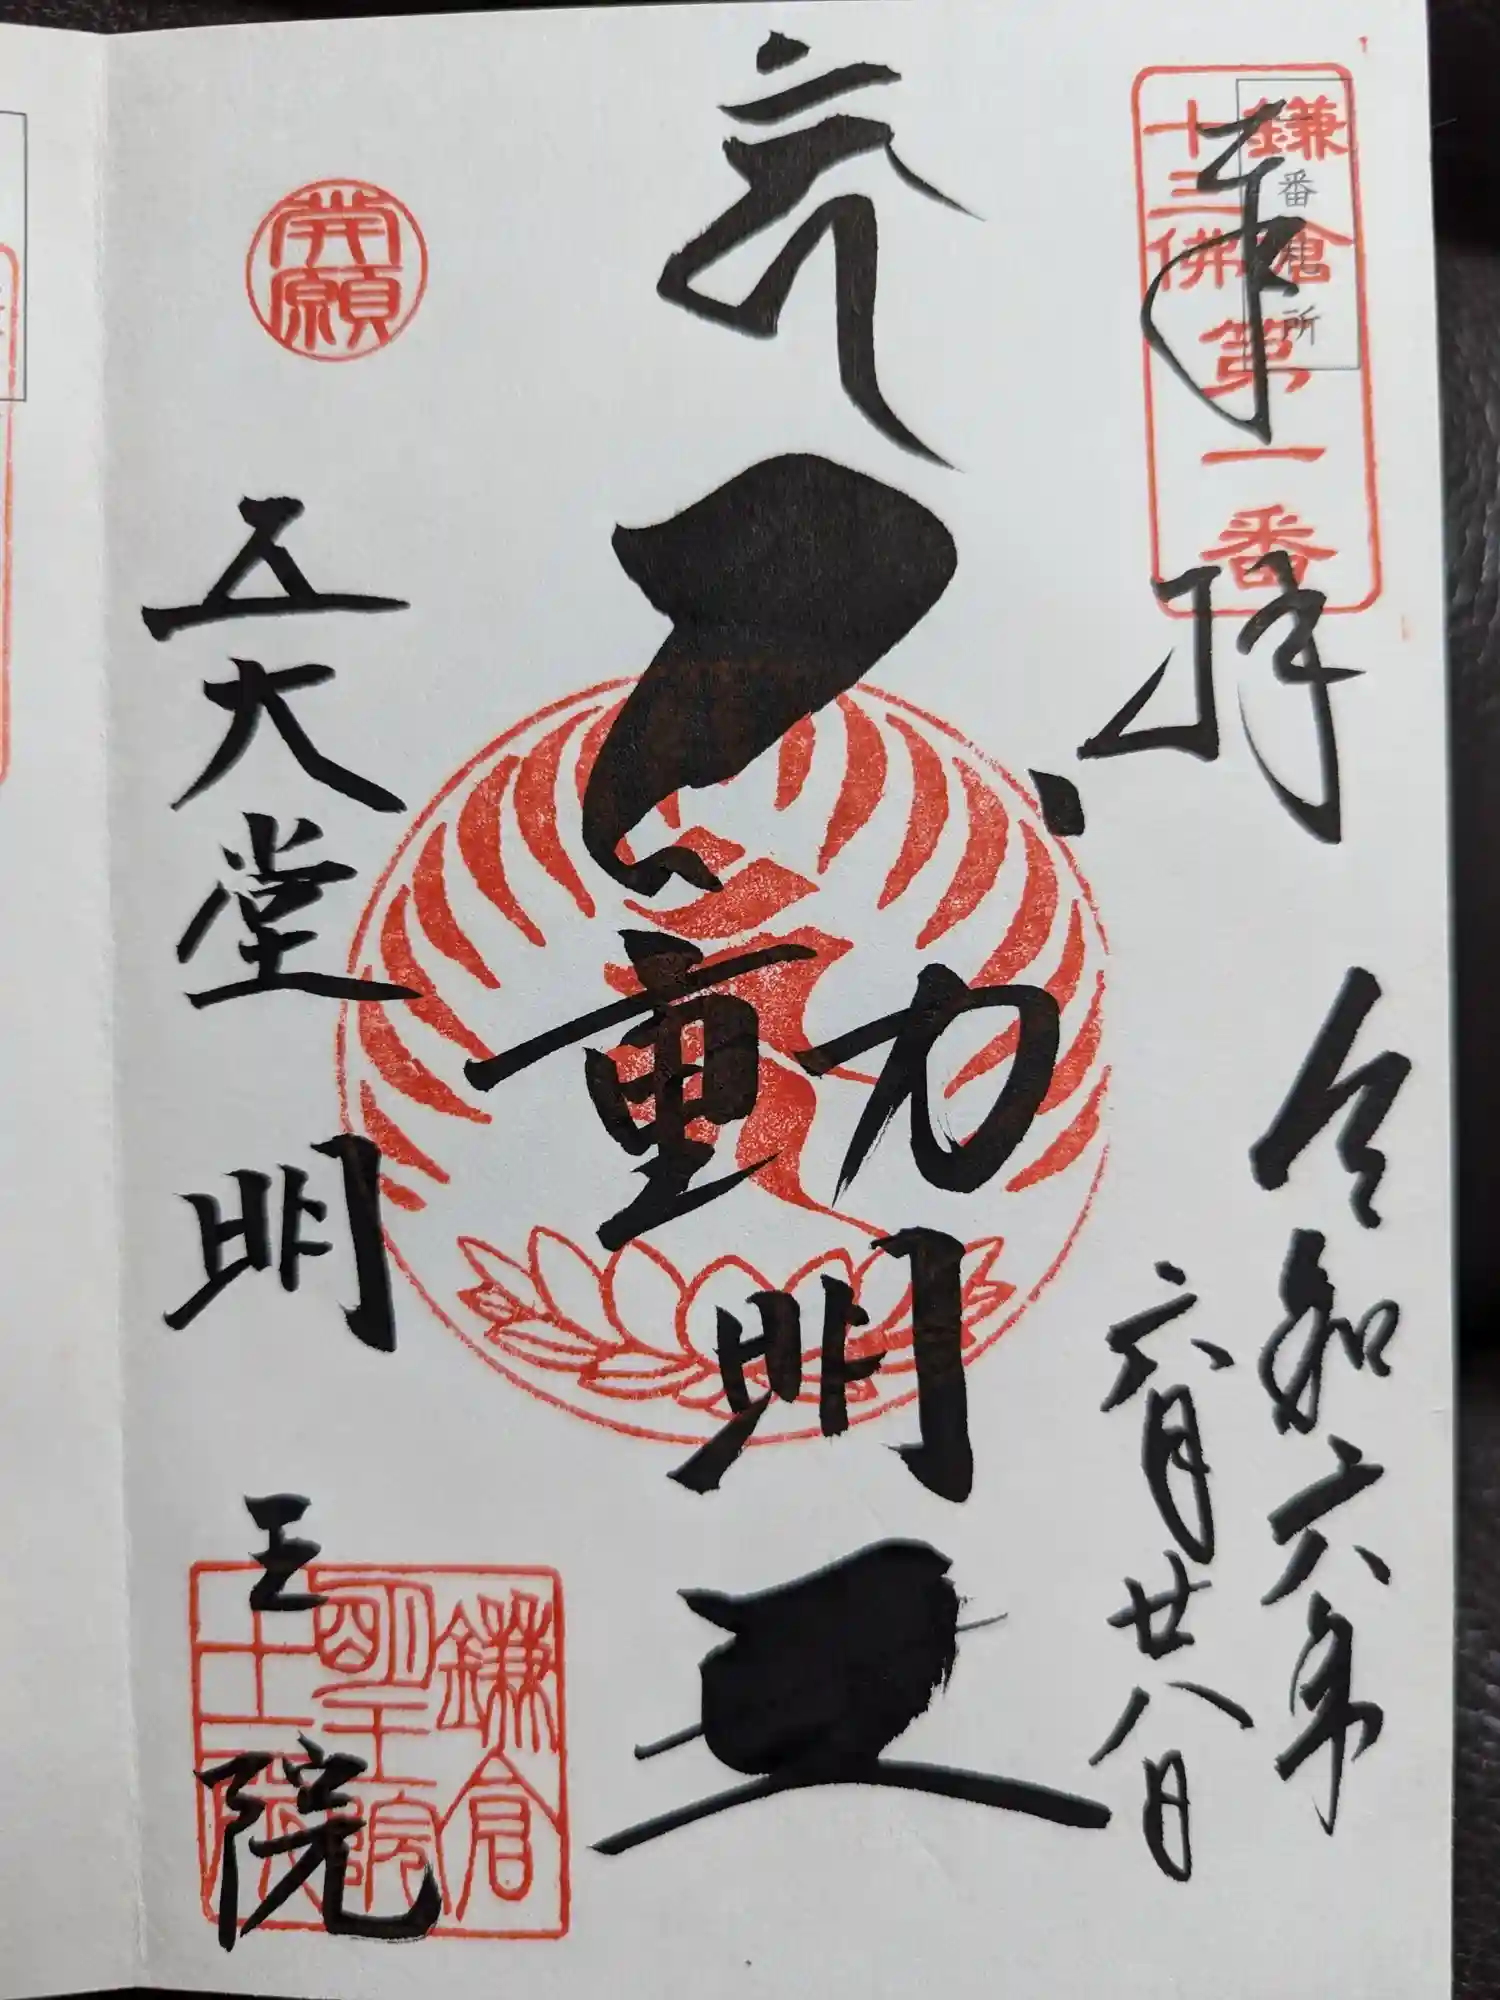 鎌倉
十三佛
第一番
番札所
奉拝
令和六年
六月廿八日
不動明王
開願
五大堂
明王院
鎌倉
明王院